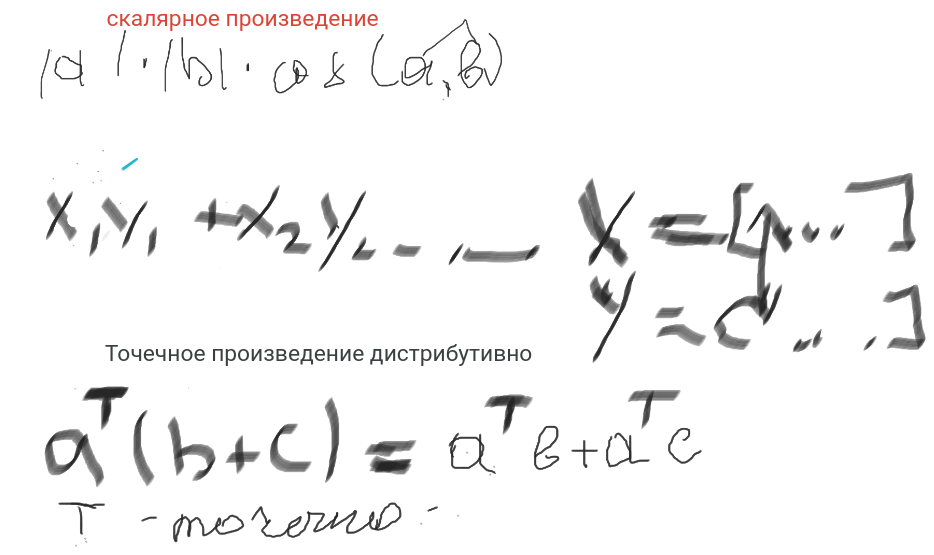 скалярное произведение
|a|·|b|·cos(a,b)
x₁y₁ + x₂y₂ - . — X = [ ... ]
y = [ ... ]
Точечное произведение дистрибутивно
aᵀ(b+c) = aᵀb + aᵀc
T - точечно -